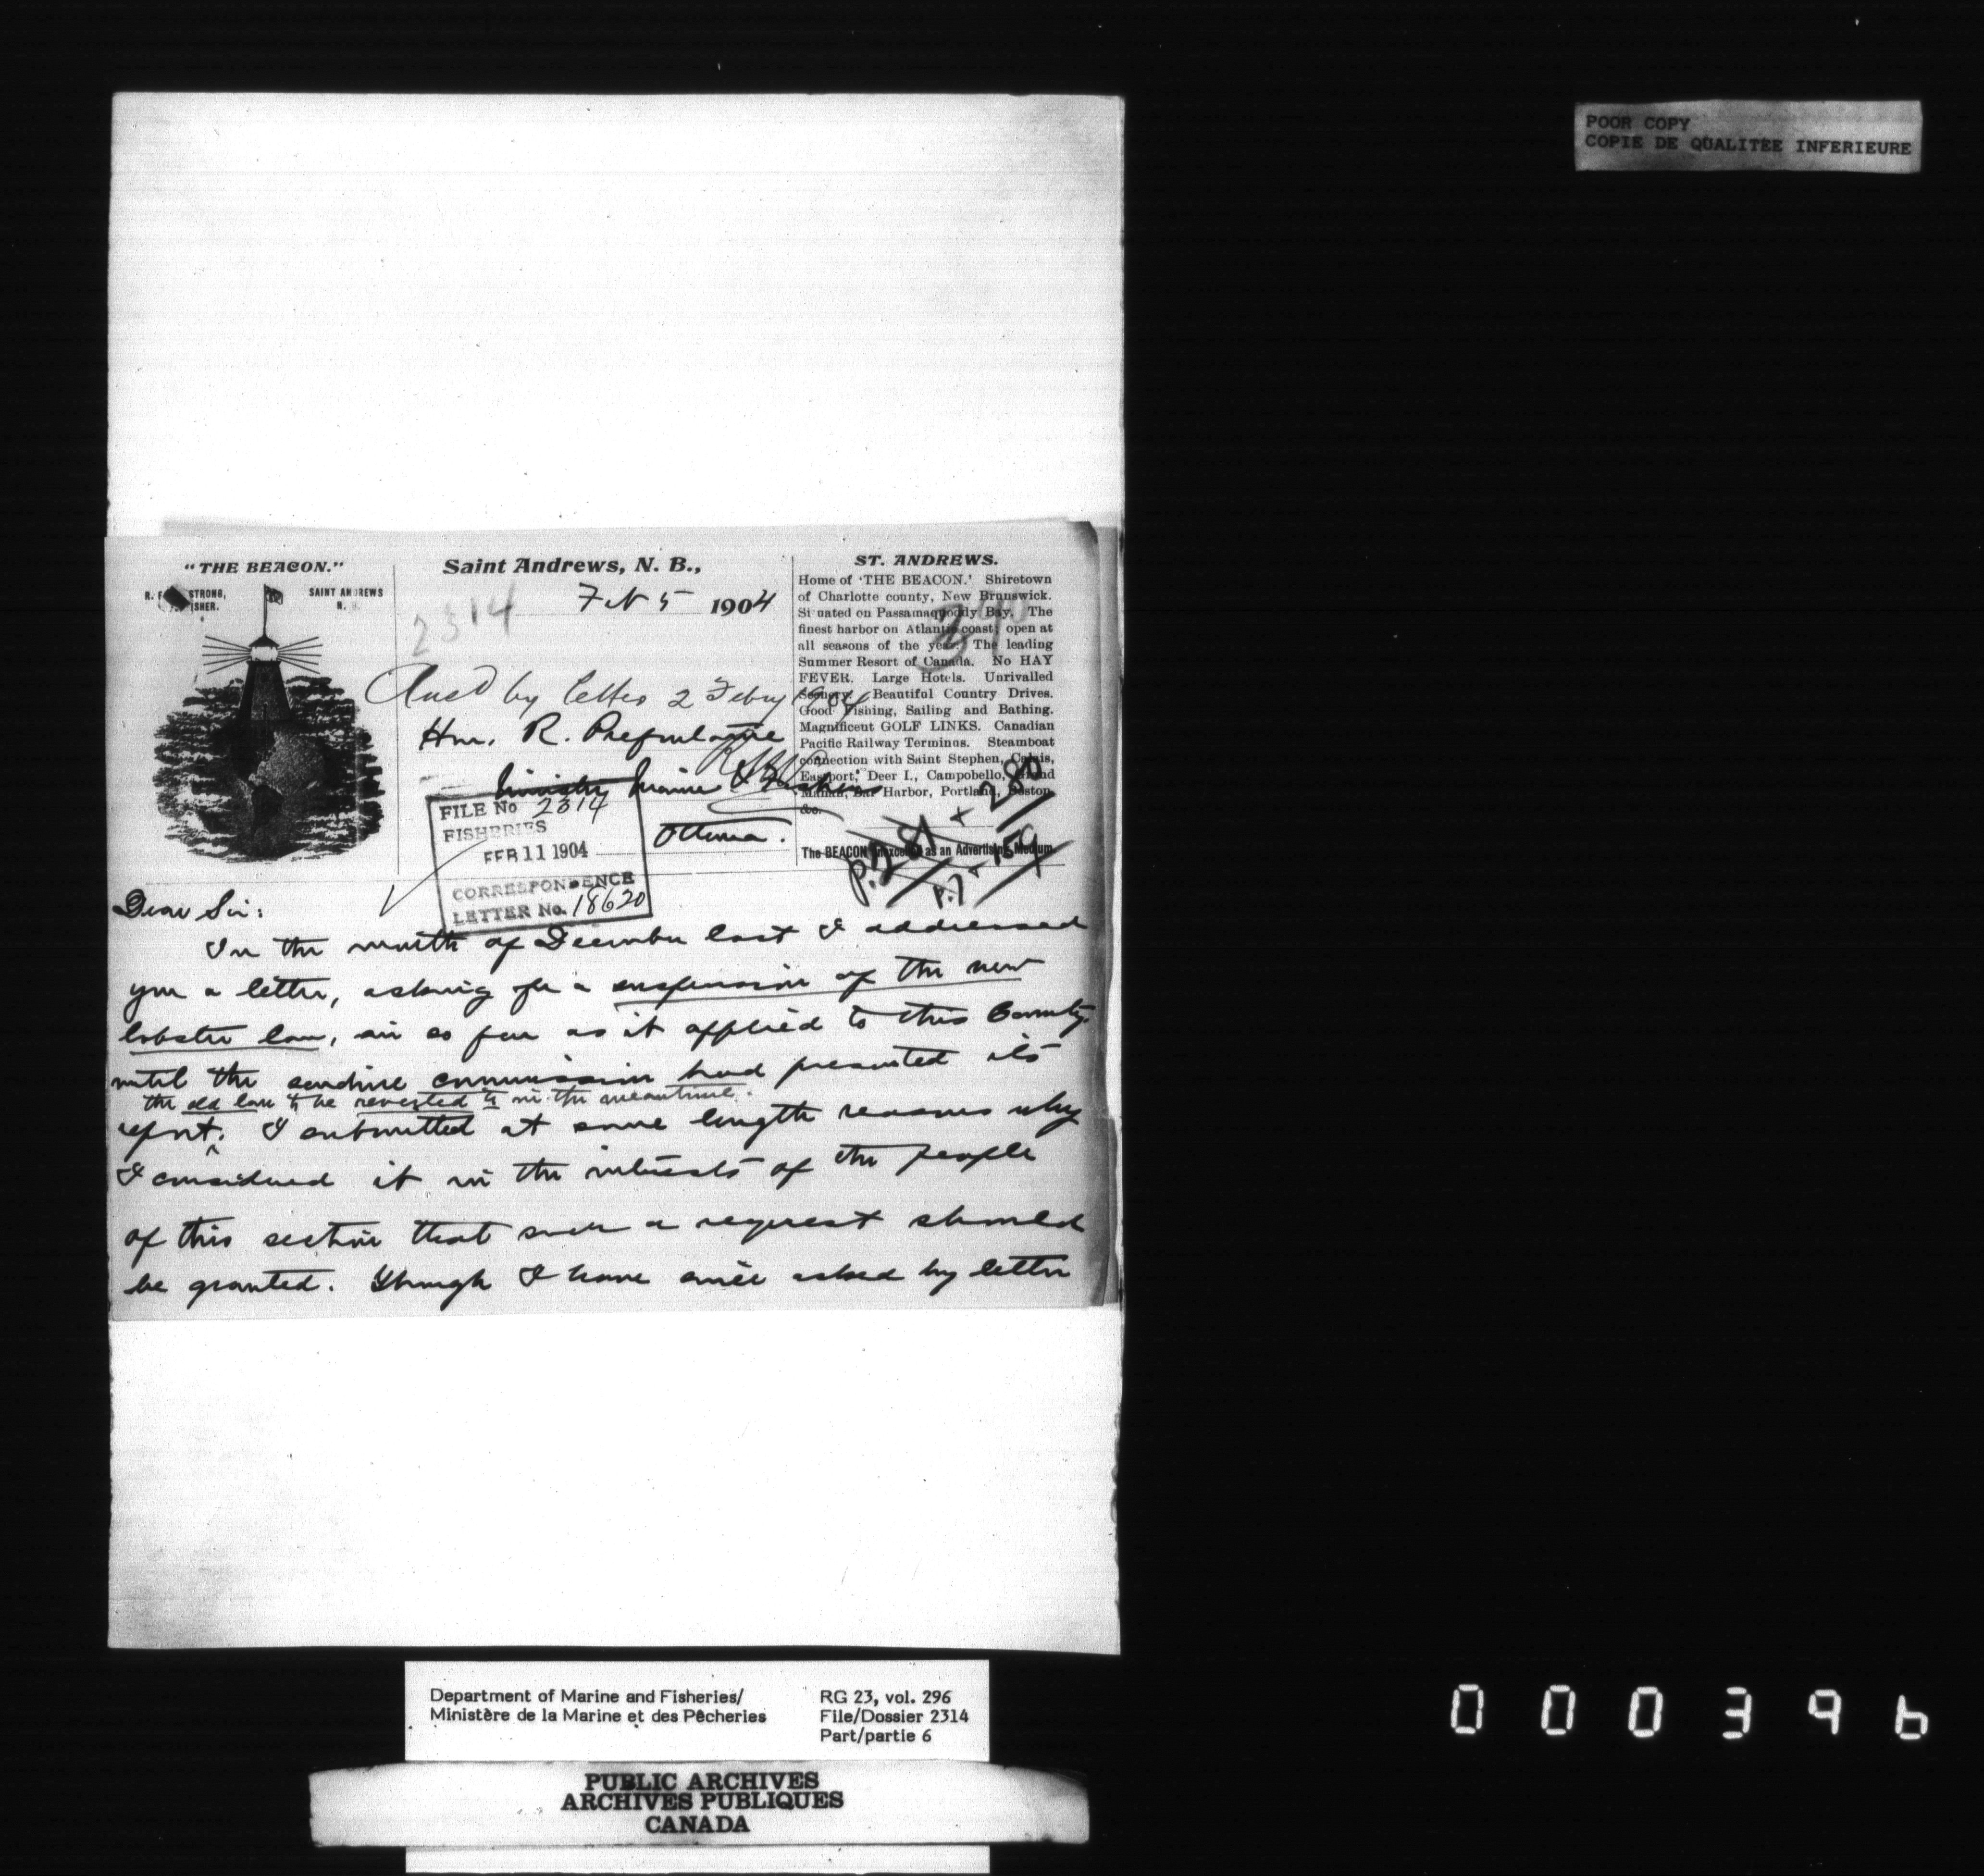 POOR COPY
COPIE DE QUALITEE INFERIEURE
"THE BEACON."
R. STRONG,
ISHER.
SAINT ANDREWS
N.
Saint Andrews, N. B.,
Feb 5 1904
2314
ST. ANDREWS.
Home of 'THE BEACON.' Shiretown
of Charlotte county, New Brunswick.
Si uated on Passamaquoddy Bay. The
finest harbor on Atlantic coast; open at
all seasons of the year. The leading
Summer Resort of Canada. No HAY
FEVER. Large Hotels. Unrivalled
Scenery. Beautiful Country Drives.
Good Fishing, Sailing and Bathing.
Magnificent GOLF LINKS. Canadian
Pacific Railway Terminus. Steamboat
connection with Saint Stephen, Calais,
Eastport, Deer I., Campobello, Grand
Manan, Bar Harbor, Portland, Boston
&c.
The BEACON unexcelled as an Advertising Medium
Ansd by letter 2 Febry 1904
Hon. R. Prefontaine
Minister Marine & Fisheries
Ottawa.
FILE No 2314
FISHERIES
FEB 11 1904
CORRESPONDENCE
LETTER No. 18620
p. 281 + 280
p. 7 + 159
Dear Sir:
In the month of December last I addressed
you a letter, asking for a suspension of the new
lobster law, in so far as it applied to this County,
until the sardine commission had presented its
the old law to be reverted to in the meantime.
report. I submitted at some length reasons why
I considered it in the interests of the people
of this section that such a request should
be granted. Though I have since asked by letter
Department of Marine and Fisheries/
Ministère de la Marine et des Pêcheries
RG 23, vol. 296
File/Dossier 2314
Part/partie 6
PUBLIC ARCHIVES
ARCHIVES PUBLIQUES
CANADA
000396